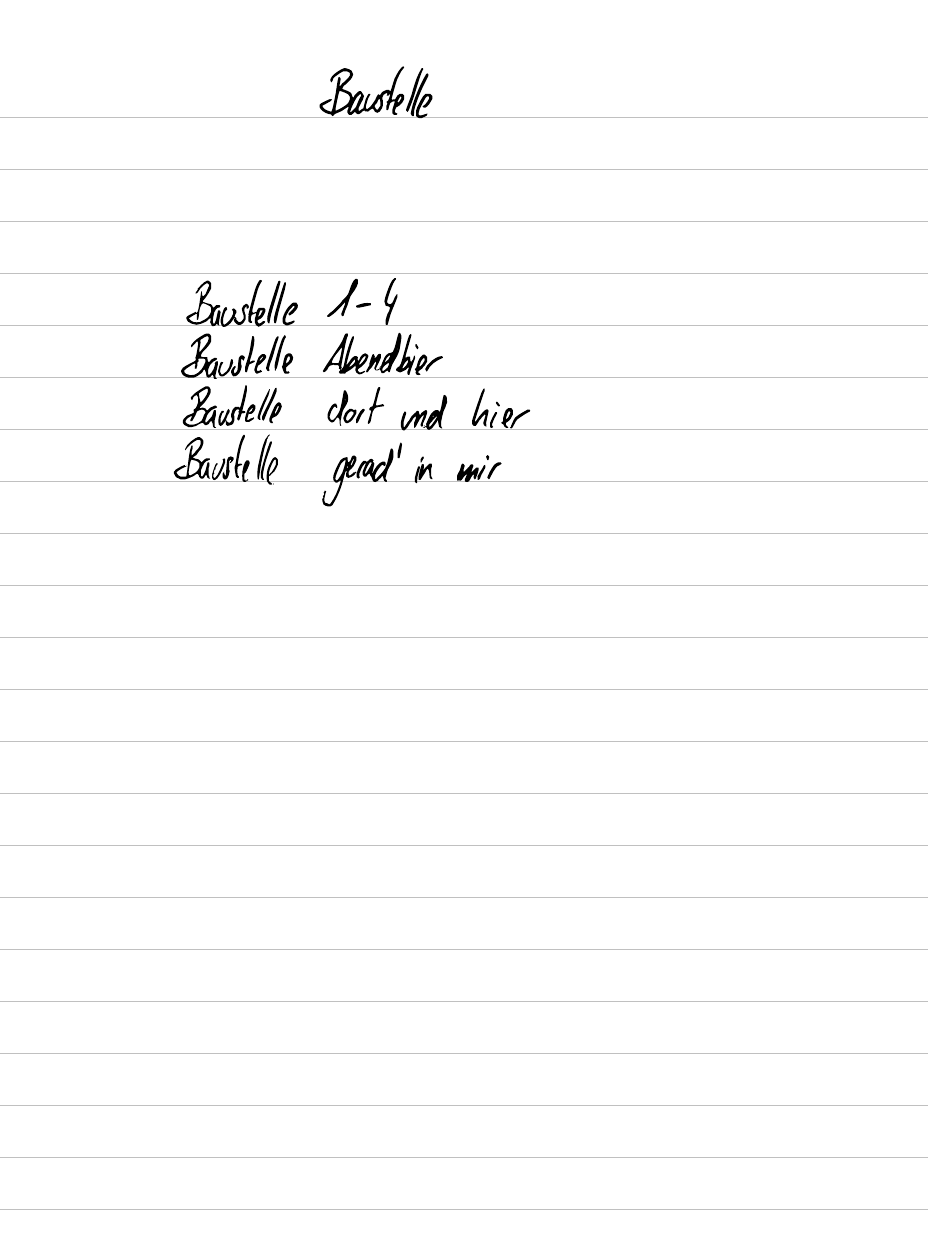 Baustelle
Baustelle 1-4
Baustelle Abendbier
Baustelle dort und hier
Baustelle gerad' in mir